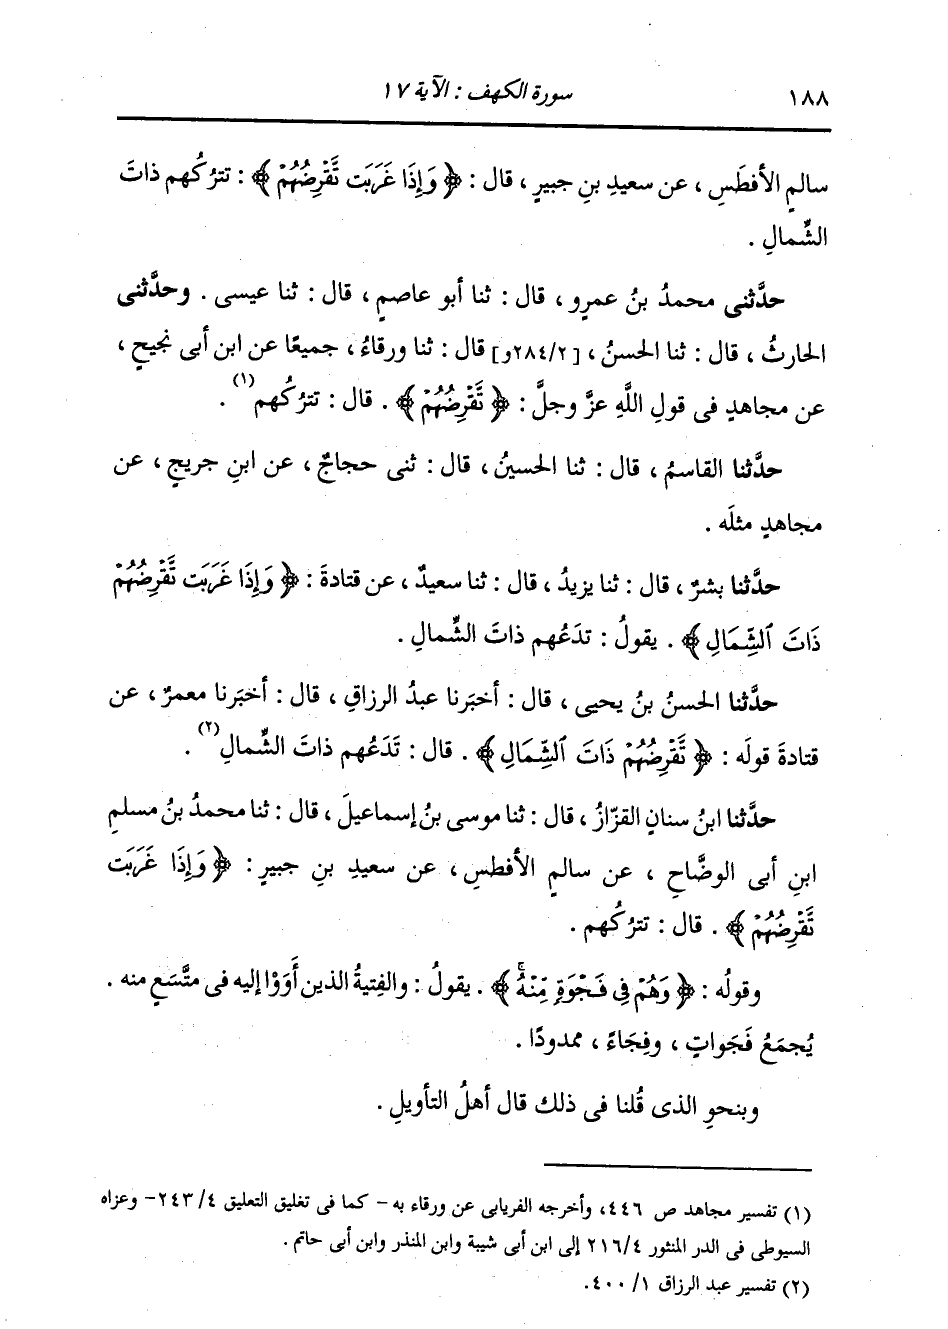 ١٨٨ سورة الكهف : الآية ١٧
سالمٍ الأفطَسِ ، عن سعيدِ بنِ جبيرٍ ، قال : ﴿ وَإِذَا غَرَبَت تَّقْرِضُهُمْ ﴾ : تترُكُهم ذاتَ
الشِّمالِ .
حدَّثنى محمدُ بنُ عمرٍو ، قال : ثنا أبو عاصمٍ ، قال : ثنا عيسى . وحدَّثنى
الحارثُ ، قال : ثنا الحسنُ ، [٢٨٤/٢و] قال : ثنا ورقاءُ ، جميعًا عن ابن أبى نجيحٍ ،
عن مجاهدٍ فى قولِ اللَّهِ عزَّ وجلَّ : ﴿ تَّقْرِضُهُمْ ﴾ . قال : تترُكُهم(١) .
حدَّثنا القاسمُ ، قال : ثنا الحسينُ ، قال : ثنى حجاجٌ ، عن ابنِ جريجٍ ، عن
مجاهدٍ مثلَه .
حدَّثنا بشرٌ ، قال : ثنا يزيدُ ، قال : ثنا سعيدٌ ، عن قتادةَ : ﴿ وَإِذَا غَرَبَت تَّقْرِضُهُمْ
ذَاتَ ٱلشِّمَالِ ﴾ . يقولُ : تدَعُهم ذاتَ الشِّمالِ .
حدَّثنا الحسنُ بنُ يحيى ، قال : أخبَرنا عبدُ الرزاقِ ، قال : أخبَرنا معمرٌ ، عن
قتادةَ قولَه : ﴿ تَّقْرِضُهُمْ ذَاتَ ٱلشِّمَالِ ﴾ . قال : تَدَعُهم ذاتَ الشِّمالِ(٢) .
حدَّثنا ابنُ سنانٍ القزّازُ ، قال : ثنا موسى بنُ إسماعيلَ ، قال : ثنا محمدُ بنُ مسلمِ
ابنِ أبى الوضَّاحِ ، عن سالمٍ الأفطسِ ، عن سعيدِ بنِ جبيرٍ : ﴿ وَإِذَا غَرَبَت
تَّقْرِضُهُمْ ﴾ . قال : تترُكُهم .
وقولُه : ﴿ وَهُمْ فِى فَجْوَةٍ مِّنْهُۚ ﴾ . يقولُ : والفِتيةُ الذين أَوَوْا إليه فى متَّسَعٍ منه .
يُجمَعُ فَجَواتٍ ، وفِجَاءً ، ممدودًا .
وبنحوِ الذى قُلنا فى ذلك قال أهلُ التأويلِ .
(١) تفسير مجاهد ص ٤٤٦ ، وأخرجه الفريابى عن ورقاء به – كما فى تغليق التعليق ٤/ ٢٤٣ – وعزاه
السيوطى فى الدر المنثور ٢١٦/٤ إلى ابن أبى شيبة وابن المنذر وابن أبى حاتم .
(٢) تفسير عبد الرزاق ١/ ٤٠٠ .